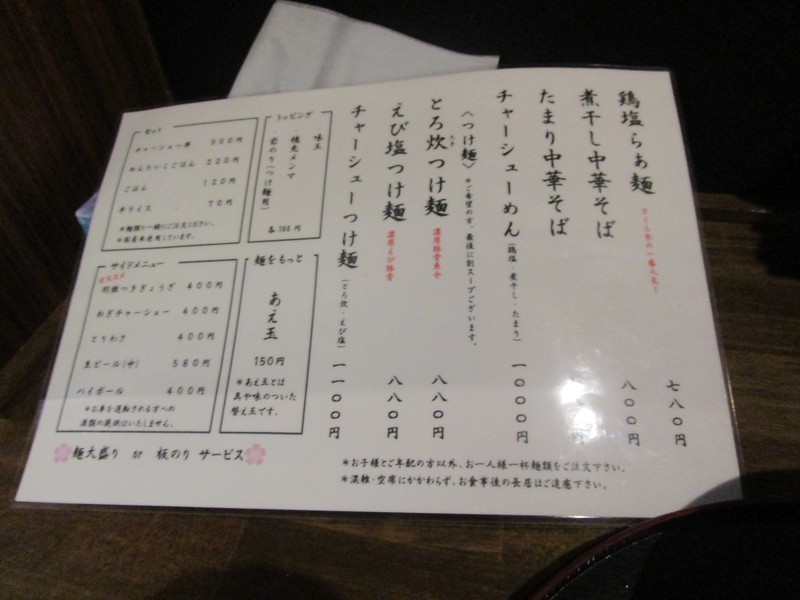 鶏塩らぁ麺
さくら木の一番人気！
七八〇円
煮干し中華そば
八〇〇円
たまり中華そば
チャーシューめん (鶏塩・煮干し・たまり) 一〇〇〇円
〈つけ麺〉 *ご希望の方、最後に割スープございます。
とろ炊つけ麺 濃厚豚骨魚介 八八〇円
えび塩つけ麺 濃厚えび豚骨 八八〇円
チャーシューつけ麺 (とろ炊・えび塩) 一一〇〇円
トッピング
味玉
穂先メンマ
岩のり(つけ麺用)
各100円
麺をもっと
あえ玉
150円
*あえ玉とは
具や味のついた
替え玉です。
セット
チャーシュー丼 300円
めんたいこごはん 220円
ごはん 120円
半ライス 70円
*麺類と一緒にご注文ください。
*国産米使用しています。
サイドメニュー
オススメ
羽根つきぎょうざ 400円
ねぎチャーシュー 400円
とりわさ 400円
生ビール(中) 580円
ハイボール 400円
*お車を運転される方への
酒類の提供はいたしません。
麺大盛り or 板のり サービス
*お子様とご年配の方以外、お一人様一杯麺類をご注文下さい。
*混雑・空席にかかわらず、お食事後の長居はご遠慮下さい。